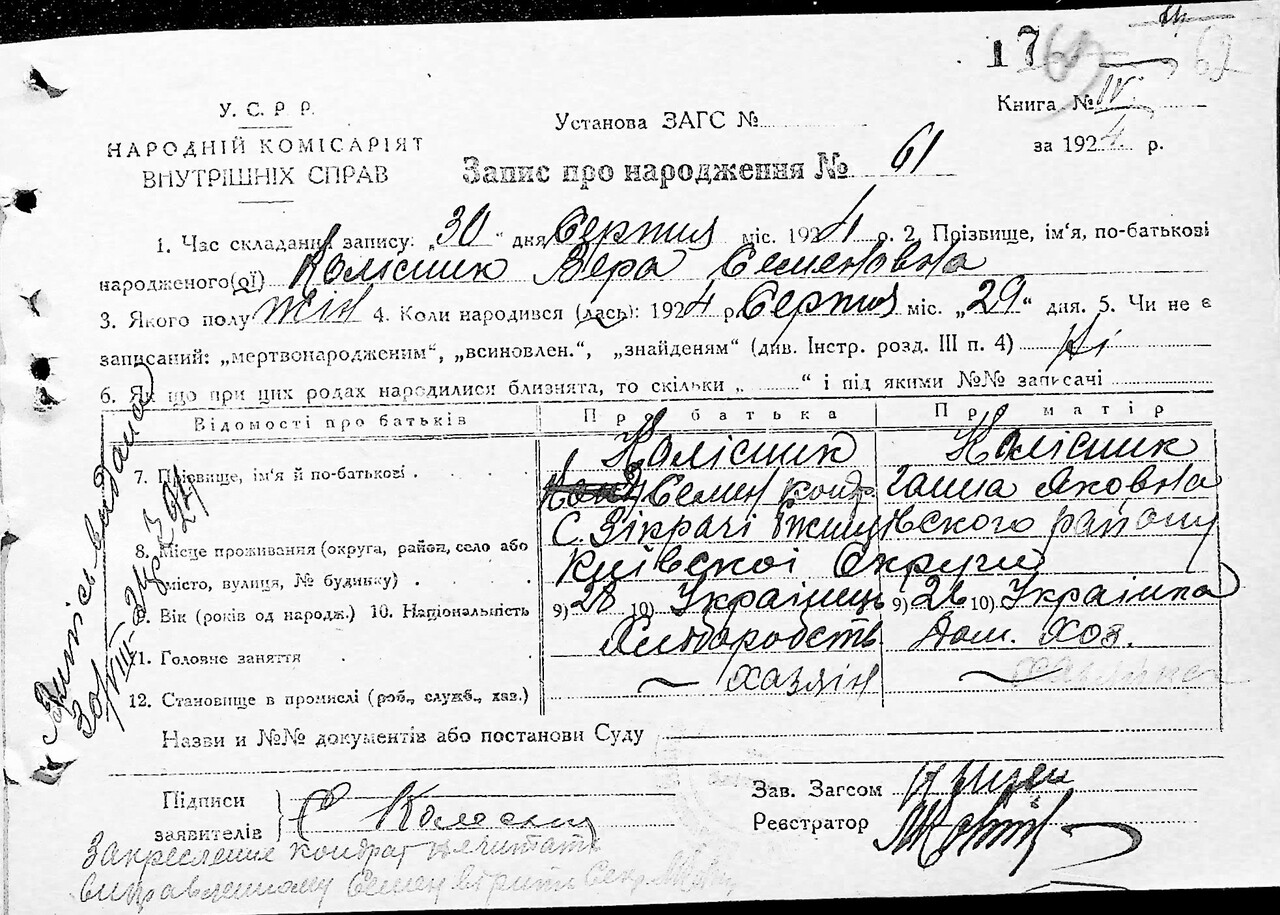 17
У. С. Р. Р.
НАРОДНІЙ КОМІСАРІЯТ
ВНУТРІШНІХ СПРАВ
Установа ЗАГС №
Книга № IV
за 1924 р.
Запис про народження № 61
1. Час складання запису: „30“ дня Серпня міс. 1924 р. 2. Прізвище, ім'я, по-батькові
народженого(ої) Колісник Вера Семеновна
3. Якого полу жін 4. Коли народився (лась): 1924 р. Серпня міс. „29“ дня. 5. Чи не є
записаний: „мертвонародженим“, „всиновлен.“, „знайденям“ (див. Інстр. розд. III п. 4) Ні
6. Як що при цих родах народилися близнята, то скільки „ “ і під якими №№ записані
Відомості про батьків Про батька Про матір
7. Прізвище, ім'я й по-батькові Колісник Колісник
Семен Конд Ганна Яковна
8. Місце проживання (округа, район, село або С. Зікрачі Ржищівского району
місто, вулиця, № будинку) Київскої Округи
9. Вік (років од народж.) 10. Національність 9) 28 10) Українець 9) 26 10) Українка
11. Головне заняття Хліборобств Дом. Хоз.
12. Становище в промислі (роб., служб., хаз.) — хазяін —
Назви и №№ документів або постанови Суду
Підписи
заявителів
Зав. Загсом
Реєстратор
Закреслене Кондрат не читать
виправленому Семен вірити Секр.
Запись видана
30/VIII-24